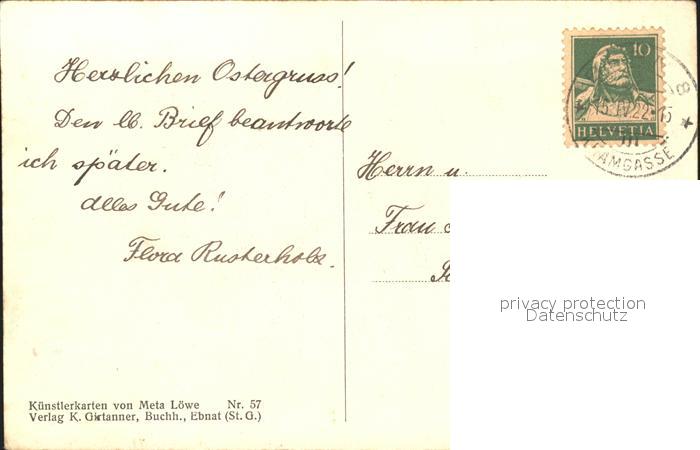 Herzlichen Ostergruss!
Den lb. Brief beantworte
ich später.
Alles Gute!
Flora Rusterholz.
Herrn u.
Frau
10
HELVETIA
15.IV.22.
KRAMGASSE
privacy protection
Datenschutz
Künstlerkarten von Meta Löwe Nr. 57
Verlag K. Girtanner, Buchh., Ebnat (St. G.)